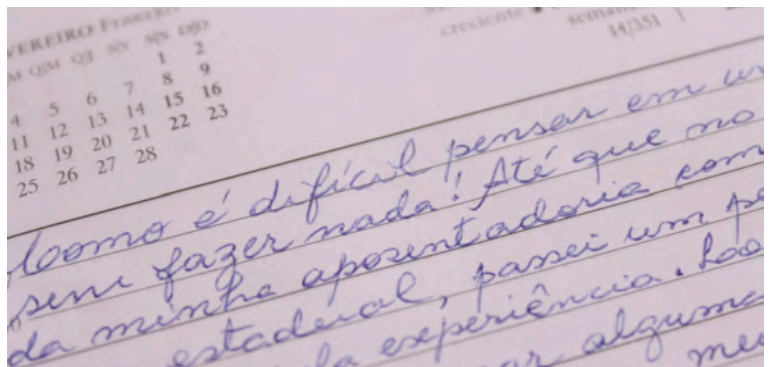 VEREIRO Febrero
M Q/M Q/J S/V S/S D/D
1 2
4 5 6 7 8 9
11 12 13 14 15 16
18 19 20 21 22 23
25 26 27 28
crescente
14/351
Como é difícil pensar em um
sem fazer nada! Até que no
da minha aposentadoria com
estadual, passei um pe
la experiência. Loo
ar alguma
meu